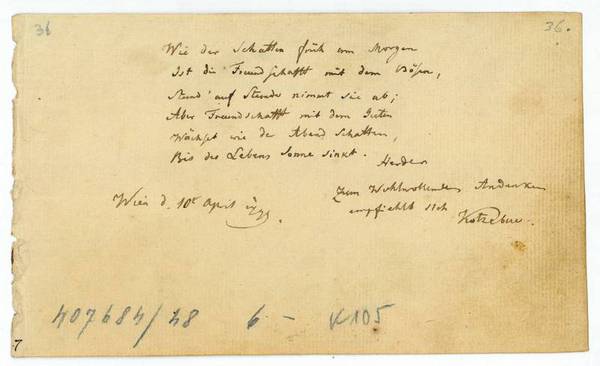 31 36.
Wie der Schatten früh am Morgen
Ist die Freundschafft mit dem Bösen,
Stund' auf Stunde nimmt sie ab;
Aber Freundschafft mit dem Guten
Wächset wie der Abend Schatten,
Bis des Lebens Sonne sinkt.
Herder
Zum Wohlwollenden Andenken
Wien d. 10t April 1799. empfiehlt sich
Kotzebue.
407684/48 6 – K105
7